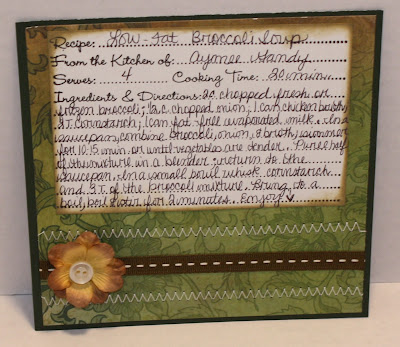 Recipe: Low-Fat Broccoli Soup
From the Kitchen of: Aymee Handy
Serves: 4 Cooking Time: 20 min.
Ingredients & Directions: 2c. chopped fresh or
frozen broccoli, chopped onion, 1 can chicken broth,
2T. cornstarch, 1 can fat-free evaporated milk. In a
saucepan, combine broccoli, onion, & broth, simmer
for 10-15 min. or until vegetables are tender. Puree half
of the mixture in a blender & return to the
saucepan. In a small bowl whisk cornstarch
and 2T. of the broccoli mixture. Bring to a
boil, boil & stir for 2 minutes. Enjoy!